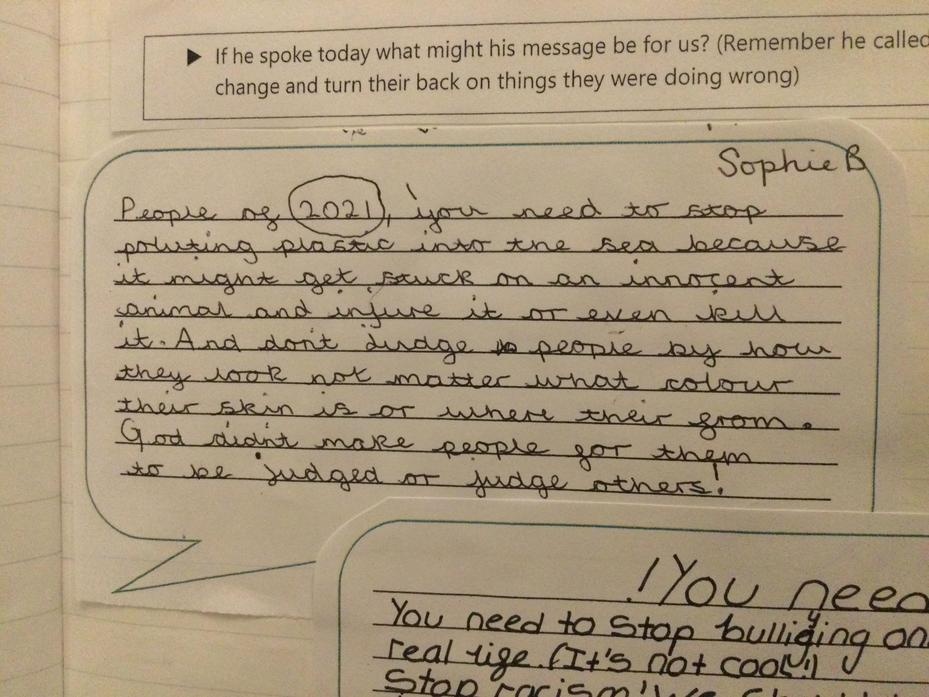 ▶ If he spoke today what might his message be for us? (Remember he called
change and turn their back on things they were doing wrong)
Sophie B
People of 2021, you need to stop
poluting plastic into the sea because
it might get stuck on an innocent
animal and injure it or even kill
it. And don't judge people by how
they look not matter what colour
their skin is or where their from.
God didn't make people for them
to be judged or judge others!
!You need
You need to stop bulliying on
real life. (It's not cool!)
Stop racism!